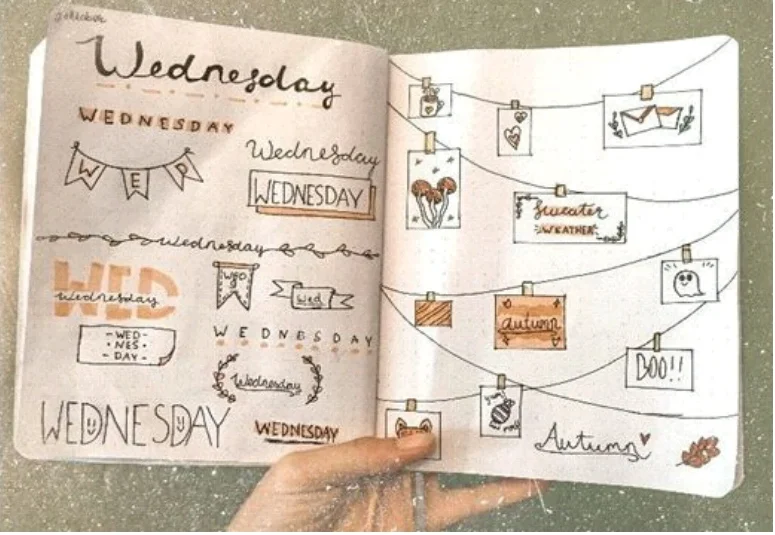 Wednesday
WEDNESDAY
WED
Wednesday
WEDNESDAY
Wednesday
WED
wednesday
WED
Wed
-WED-
• NES •
- DAY -
WEDNESDAY
Wednesday
WEDNESDAY
WEDNESDAY
Sweater
WEATHER
autumn
BOO!!
Autumn